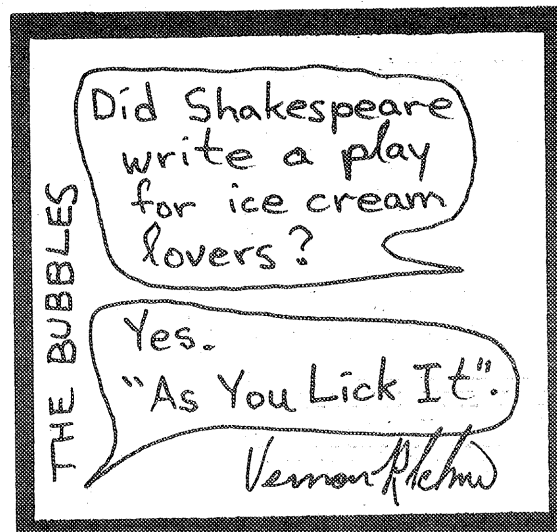 THE BUBBLES
Did Shakespeare
write a play
for ice cream
lovers?
Yes.
"As You Lick It".
Vernon